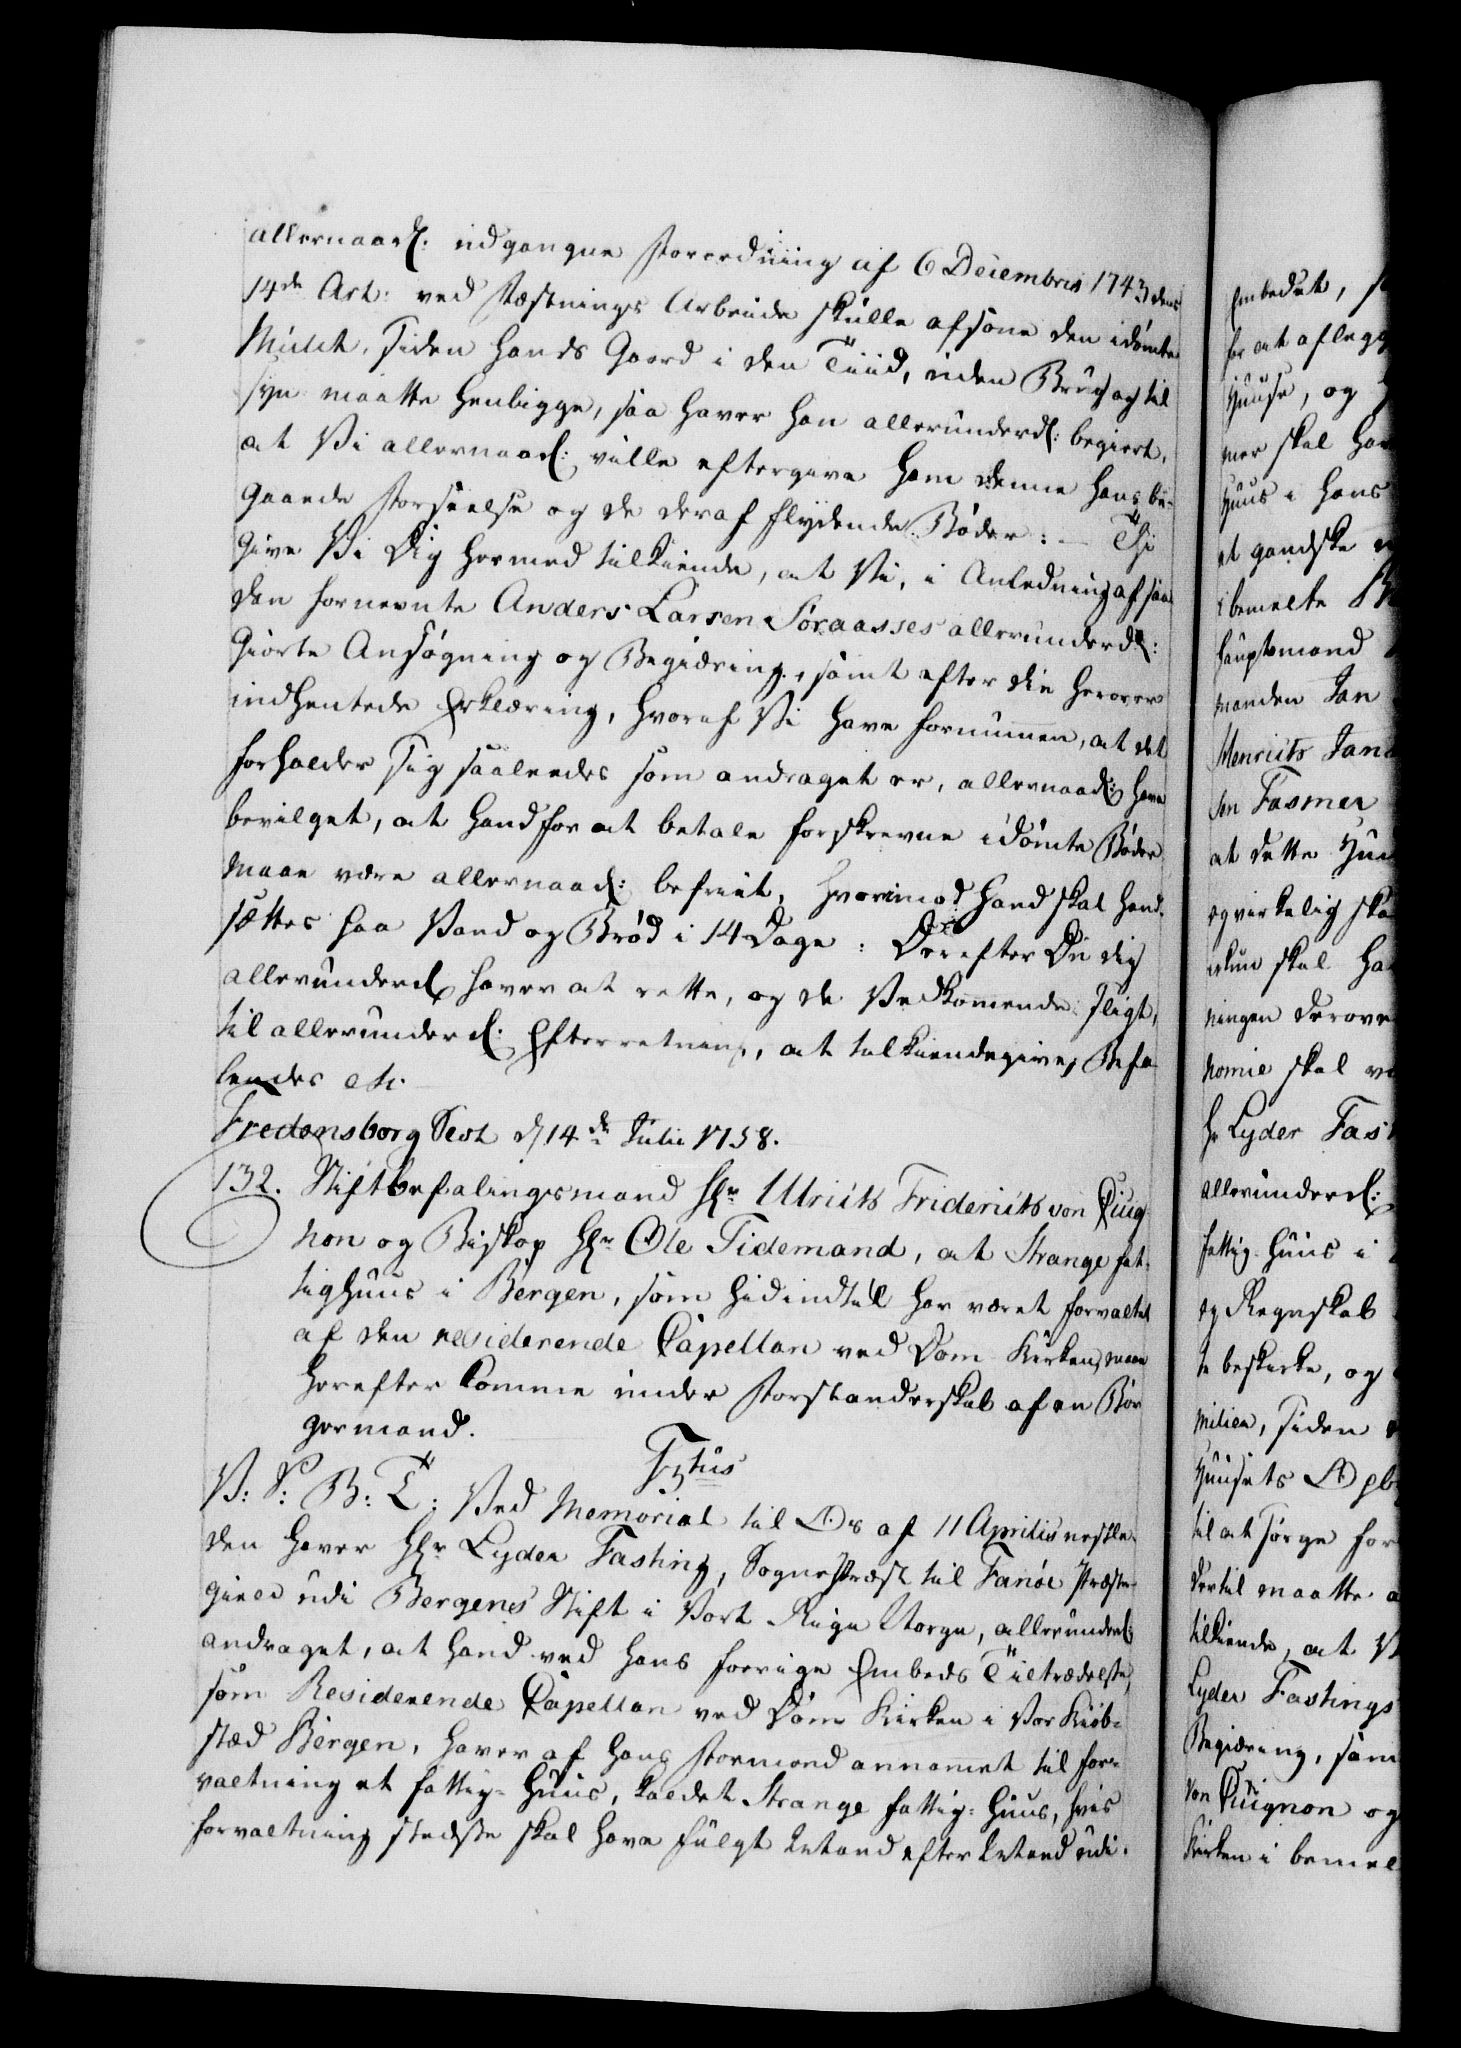 allernaad: udgangne Forordning af 6 Decembris 1743 dens
14de Art: ved Fæstnings Arbeide skulle afsone den idømte
Mulct, siden hands Gaard i den Tiid, uden Brug og til
syn maatte henligge, saa haver han allerunderd: begiert,
at Vi allernaad: ville eftergive ham denne hans be-
gaaede Forseelse og de deraf flydende Bøder: - Thi
Give Vi Dig hermed tilkiende, at Vi, i Anledning af saa-
dan fornevnte Anders Larsen Soraasses allerunderd:
Giorte Ansøgning og Begiæring, samt efter din herover
indhentede Erklæring, hvoraf Vi have fornummen, at det
forholder sig saaledes som andraget er, allernaad: have
bevilget, at hand for at betale forskrevne idømte Bøder
maae være allernaad: befriet, hvorimod hand skal hen-
sættes paa Vand og Brød i 14 Dage: Derefter Du dig
allerunderd haver at rette, og de Vedkommende sligt,
til allerunderd: Efterretning, at tilkiendegive, Befa-
lendes etc.
Fredensborg Slot d 14de Julii 1758.
132. Stiftbefalingsmand Hr Ulrichs Friderichs von Cuig
non og Biskop Hr Ole Tidemand, at Strange fat-
tighuus i Bergen, som hidindtil har været forvaltet
af den residerende Capellan ved Dom Kirken, maae
herefter komme under Forstanderskab af en Bor
germand.
V: S: B: T: Ved Memorial til Os af 11 Aprilis nestle-
den haver Hr Lyder Fasting, Sognepræst til Fanöe Præste-
gield udi Bergens Stift i Vort Rige Norge, allerunderd:
andraget, at hand ved hans forrige Embeds Tiltrædelse,
som Residerende Capellan ved Dom Kirken i Vor Kiøb-
stæd Bergen, haver af hans Formand annammet til for-
valtning et fattig-Huus, kaldet Strange fattig-Huus, hvis
forvaltning stedse skal have fulgt Mand efter Mand udi
Embedet, s
for at aflegg
Huuse, og
mer skal ha
Huus i hans
et gandske
ibemelte
hauptmand
manden Jan
Henrichs Jan
sen Fasmer
at dette Huu
og virkelig ska
skal ha
ningen derove
nomie skal v
Hr Lyder Fas
allerunderd:
fattig-huus i
og Regnskab
te beskikke, og
milien, siden
Huusets Opb
til at sørge for
dertil maatte
tilkiende, at V
Lyder Fastings
Begiæring, sam
von Cuignon og
Kirken i bemel